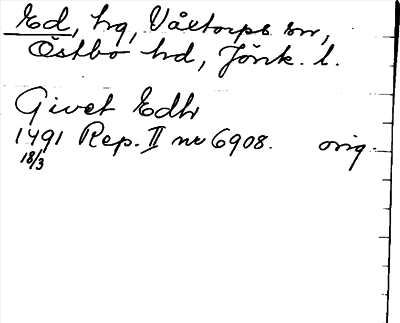 Ed, hg, Våltorps sn,
Östbo hd, Jönk. l.
Givet Edh
1491 Rep. II nr 6908. orig.
18/3